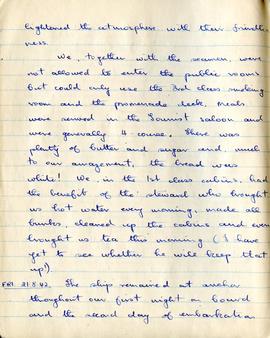 lightened the atmosphere with their friendli-
ness.
We, together with the seamen, were
not allowed to enter the public rooms
but could only use the 3rd class smoking
room and the promenade deck. Meals
were served in the Tourist saloon and
were generally 4 course. There was
plenty of butter and sugar and, much
to our amazement, the bread was
white! We, in the 1st class cabins, had
the benefit of the steward who brought
us hot water every morning, made all
bunks, cleaned up the cabins and even
brought us tea this morning (I have
yet to see whether he will keep that
up!).
FRI. 21.8.42. The ship remained at anchor
throughout our first night on board
and the second day of embarkation